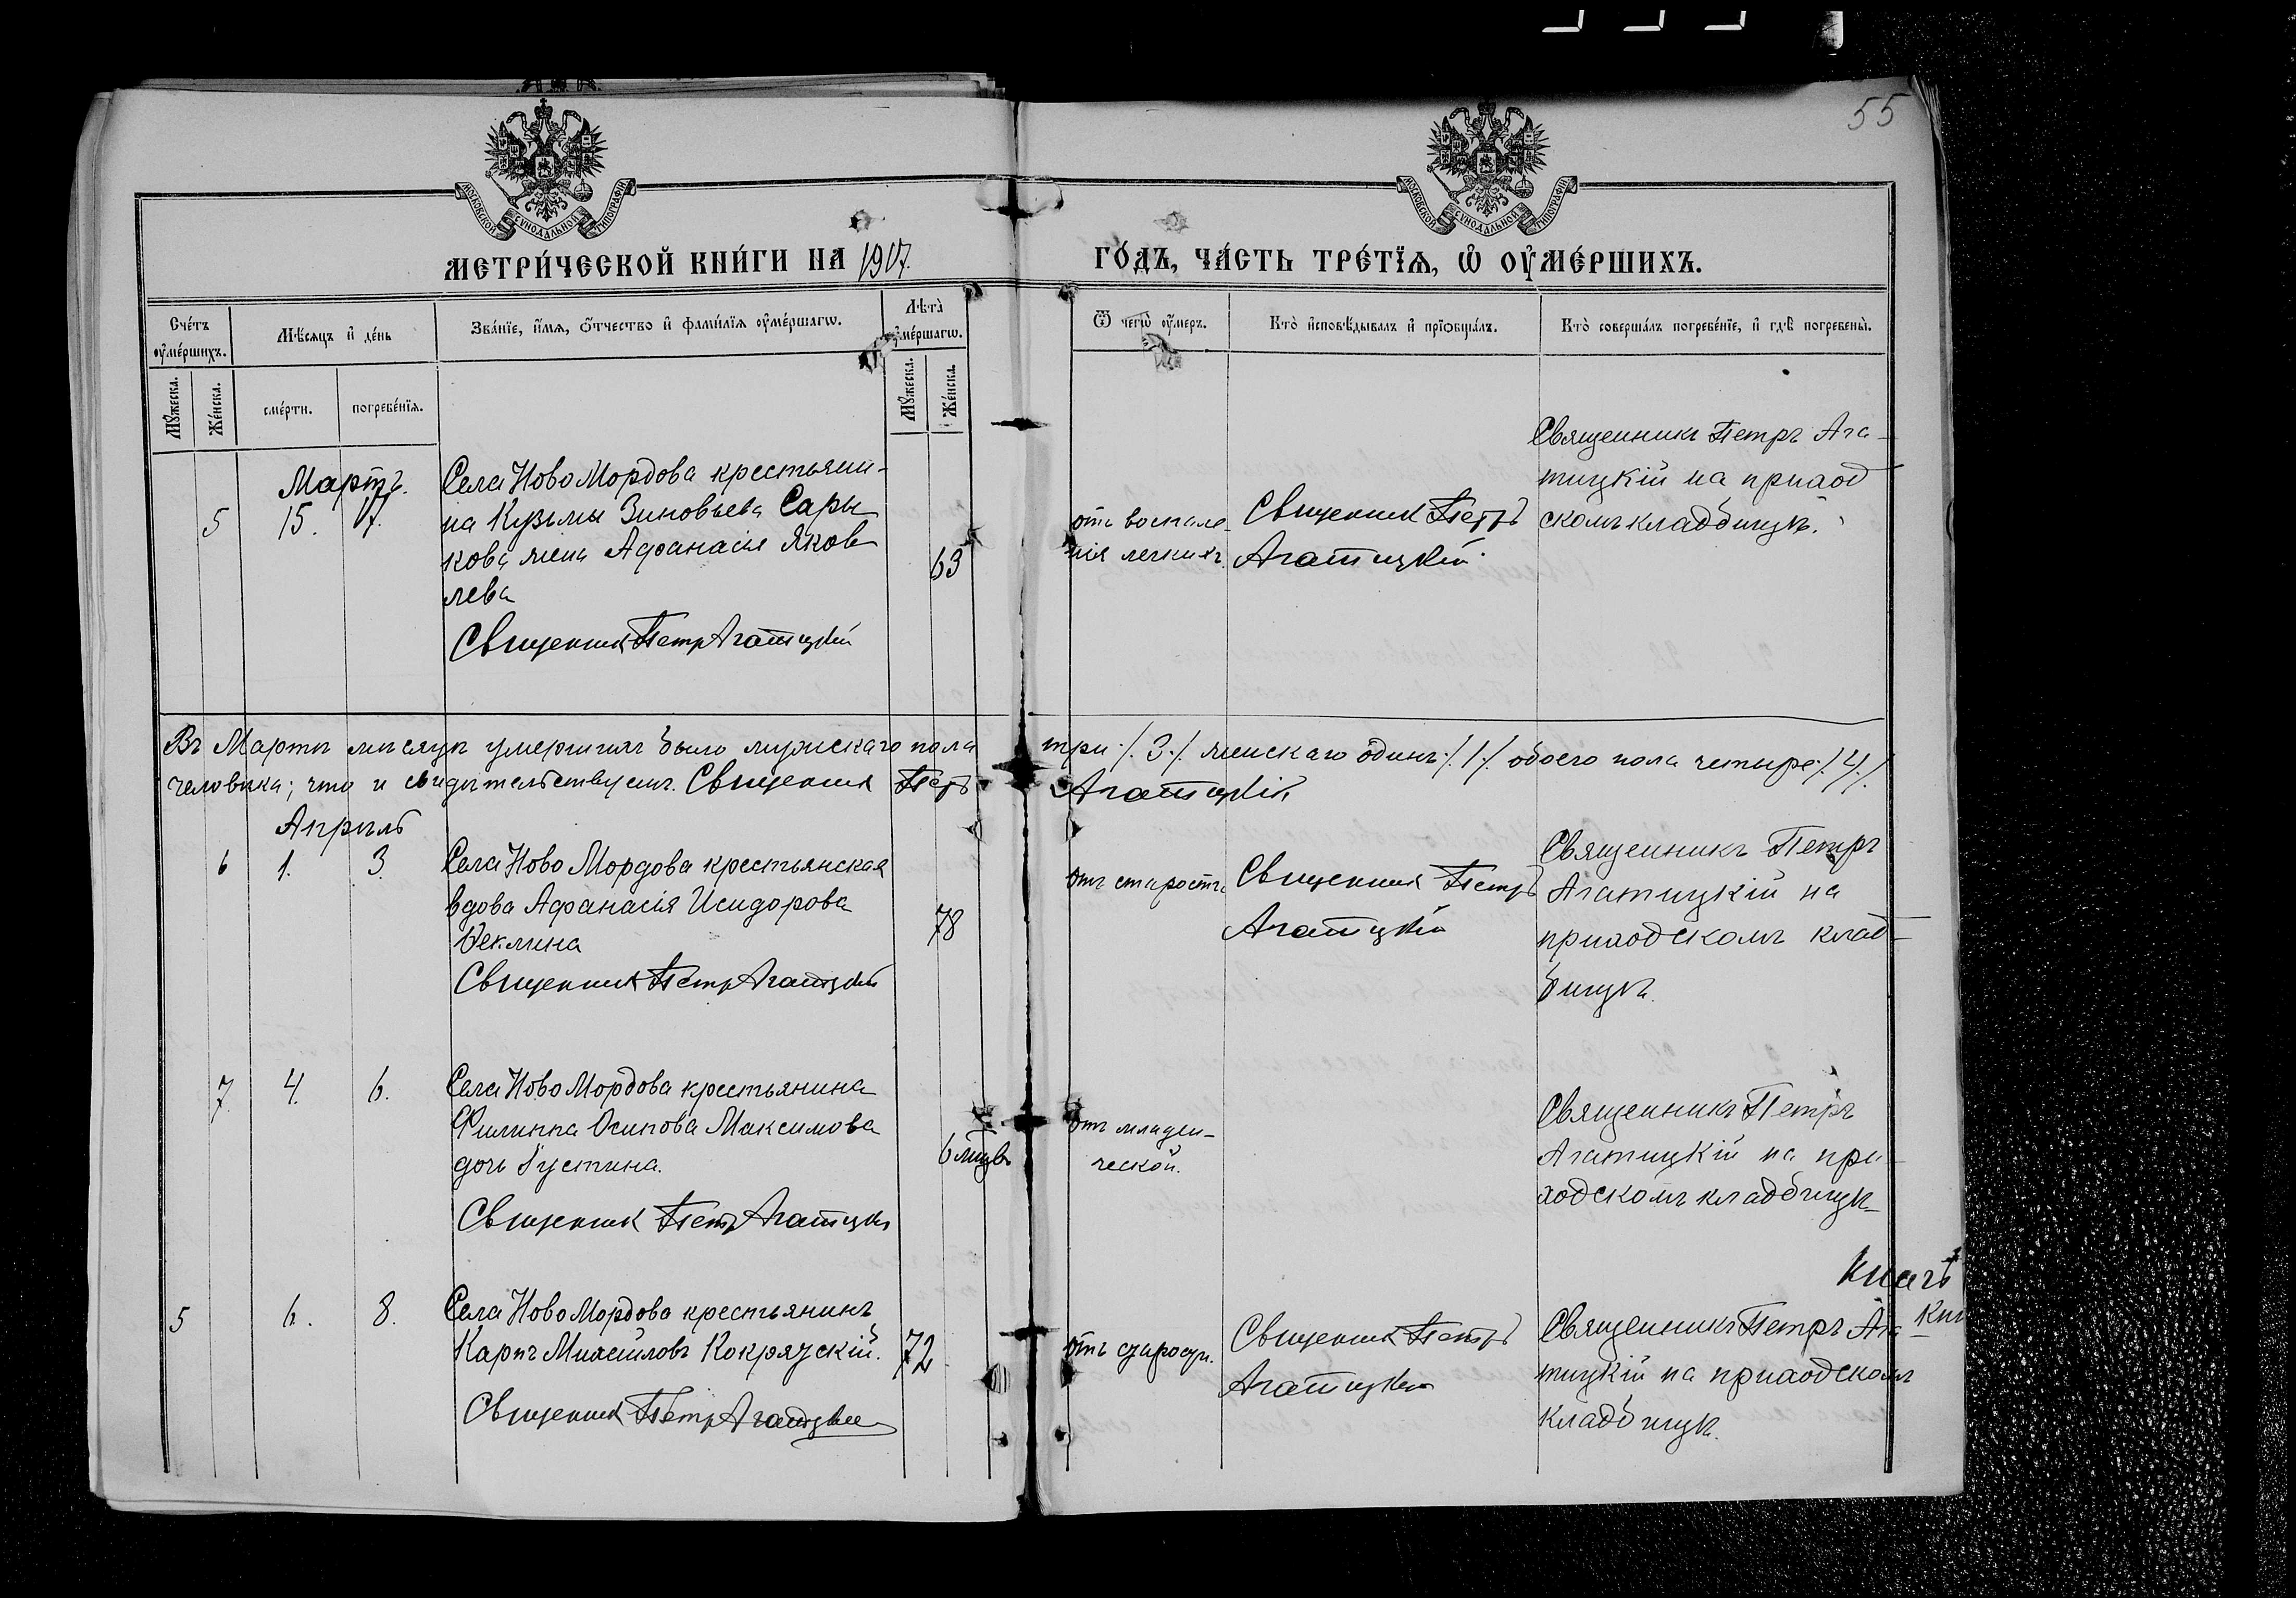 55
МОСКОВСКОЙ СѴНОДАЛЬНОЙ ТИПОГРАФІИ
МОСКОВСКОЙ СѴНОДАЛЬНОЙ ТИПОГРАФІИ
МЕТРИ́ЧЕСКОЙ КНИ́ГИ НА 1907.
ГО́ДЪ, ЧА́СТЬ ТРЕ́ТЇѦ, Ѡ҆ ОУ҆МЕ́РШИХЪ.
Сче́тъ оу҆ме́ршихъ.
Мѣ́сяцъ и҆ де́нь
Зва́нїе, и҆́мѧ, ѻ҆́тчество и҆ фами́лїѧ оу҆ме́ршагѡ.
Лѣта̀ оу҆ме́ршагѡ.
Ѿ чегѡ̀ оу҆́меръ.
Кто̀ и҆сповѣ́дывалъ и҆ прїѡбща́лъ.
Кто̀ соверша́лъ погребе́нїе, и҆ гдѣ̀ погребены̀.
Мꙋ́жеска.
Же́нска.
сме́рти.
погребе́нїѧ.
Мꙋ́жеска.
Же́нска.
Мартъ.
5 15. 17.
Села Ново Мордова крестьяни-
на Кузьмы Зиновьева Сары
кова жена Афанасія Яков
лева
63
Священник Петр Агатицкій
отъ воспале-
нія легкихъ.
Священник Петръ
Агатицкій
Священникъ Петръ Ага-
тицкій на приход
скомъ кладбищѣ.
Въ Мартѣ мѣсяцѣ умершихъ было мужскаго пола три ·/. 3 ·/. женскаго одинъ ·/. 1 ·/. обоего пола четыре ·/. 4 ·/.
человѣка; что и свидѣтельствуемъ. Священник Петръ Агатицкій
Апрѣль
6 1. 3.
Села Ново Мордова крестьянская
вдова Афанасія Исидорова
Веклина
78
Священник Петр Агатицкій
отъ старости
Священник Петръ
Агатицкій
Священникъ Петръ
Агатицкій на
приходскомъ клад-
бищѣ.
7. 4. 6.
Села Ново Мордова крестьянина
Филиппа Осипова Максимова
дочь Густина.
6 мцвъ
Священник Петр Агатицкій
отъ младен-
ческой.
Священникъ Петръ
Агатицкій на при-
ходскомъ кладбищѣ
5 6. 8.
Села Ново Мордова крестьянинъ
Карпъ Михайловъ Кокрязскій.
72
Священник Петр Агатицкій
отъ старости.
Священник Петръ
Агатицкій
Священникъ Петръ Ага
тицкій на приходскомъ
кладбищѣ.